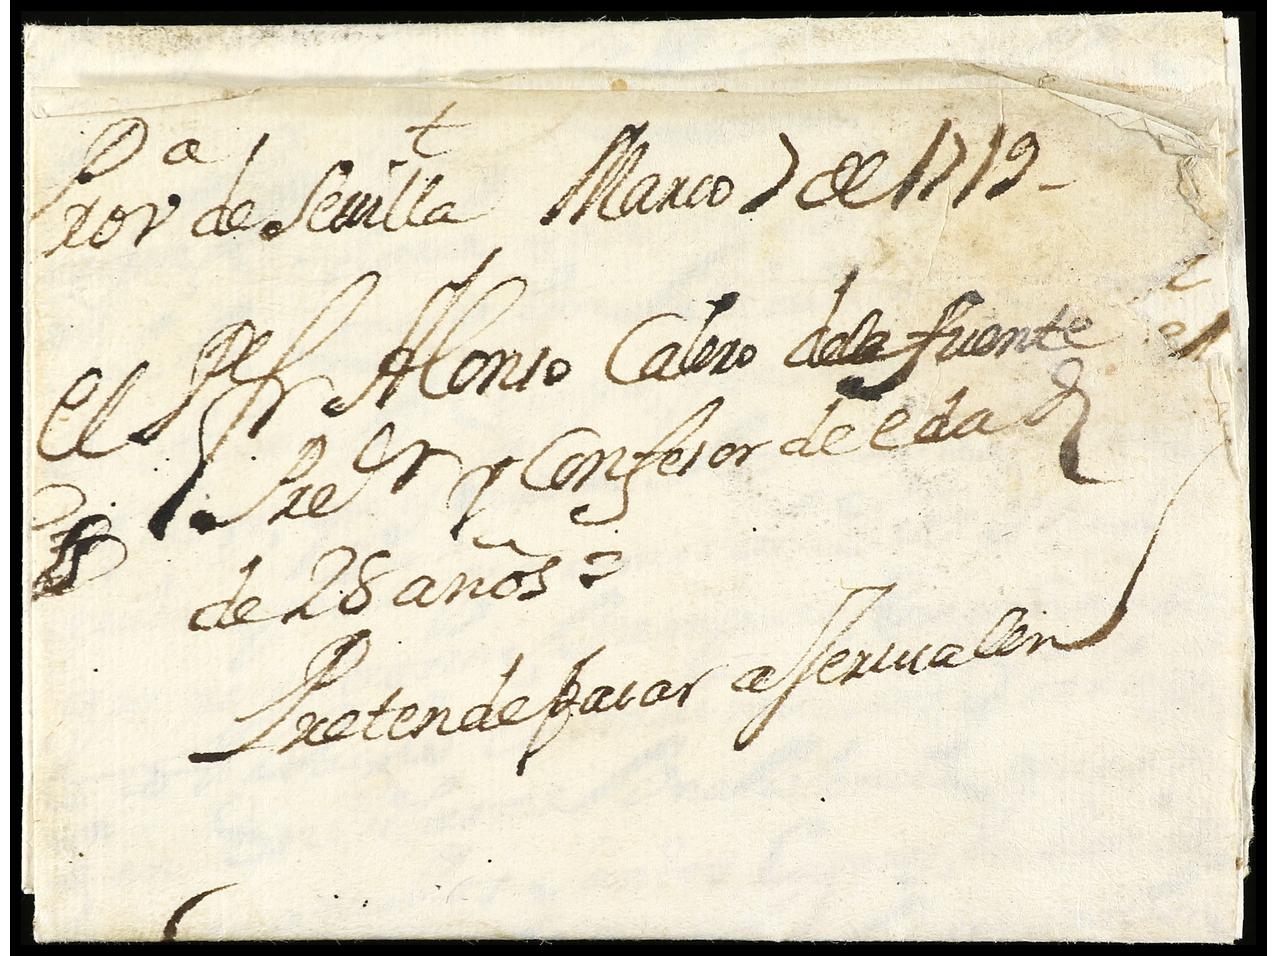 Prov.ª de Sevilla Março 7 de 1719
el P.e fr Alonso Calero dela fuente
Pre.or y Confesor de edad
de 28 años
Pretende pasar a Jerusalen